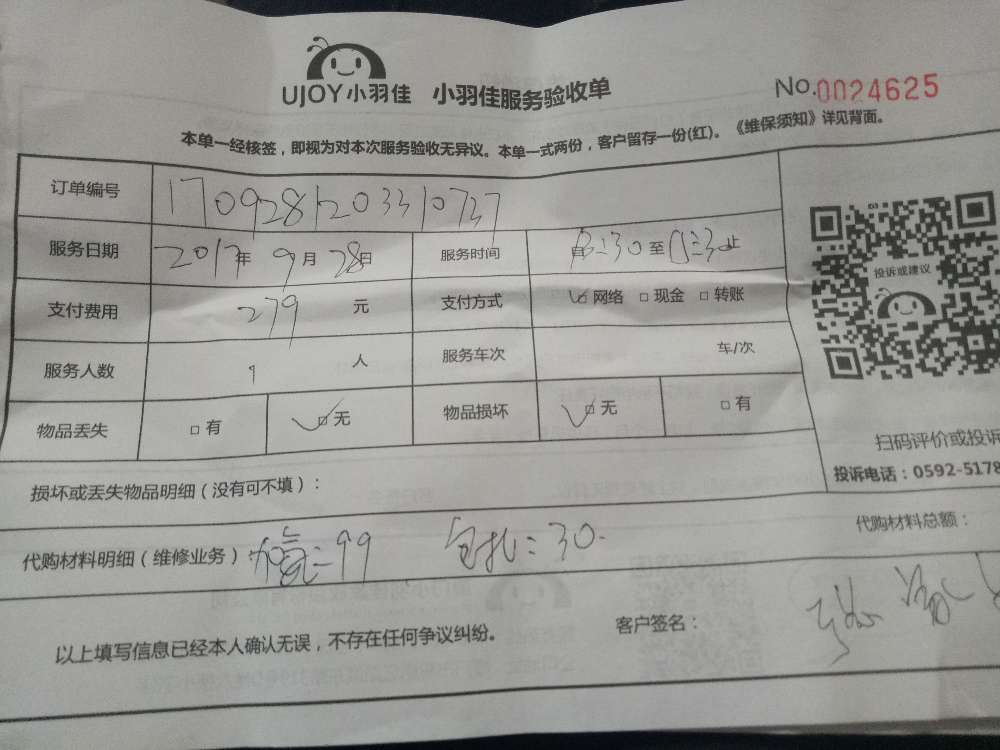 UJOY小羽佳 小羽佳服务验收单 No.0024625
本单一经核签，即视为对本次服务验收无异议。本单一式两份，客户留存一份(红)。《维保须知》详见背面。
订单编号 1709281203310737
服务日期 2017年 9月 28日 服务时间 :30 至 :30止
支付费用 279 元 支付方式 ☑网络 □现金 □转账
服务人数 1 人 服务车次 车/次
物品丢失 □有 ☑无 物品损坏 ☑无 □有
投诉或建议
扫码评价或投诉
投诉电话：0592-5178
损坏或丢失物品明细（没有可不填）：
代购材料明细（维修业务）：加氟=99 包扎=30. 代购材料总额：
以上填写信息已经本人确认无误，不存在任何争议纠纷。 客户签名：